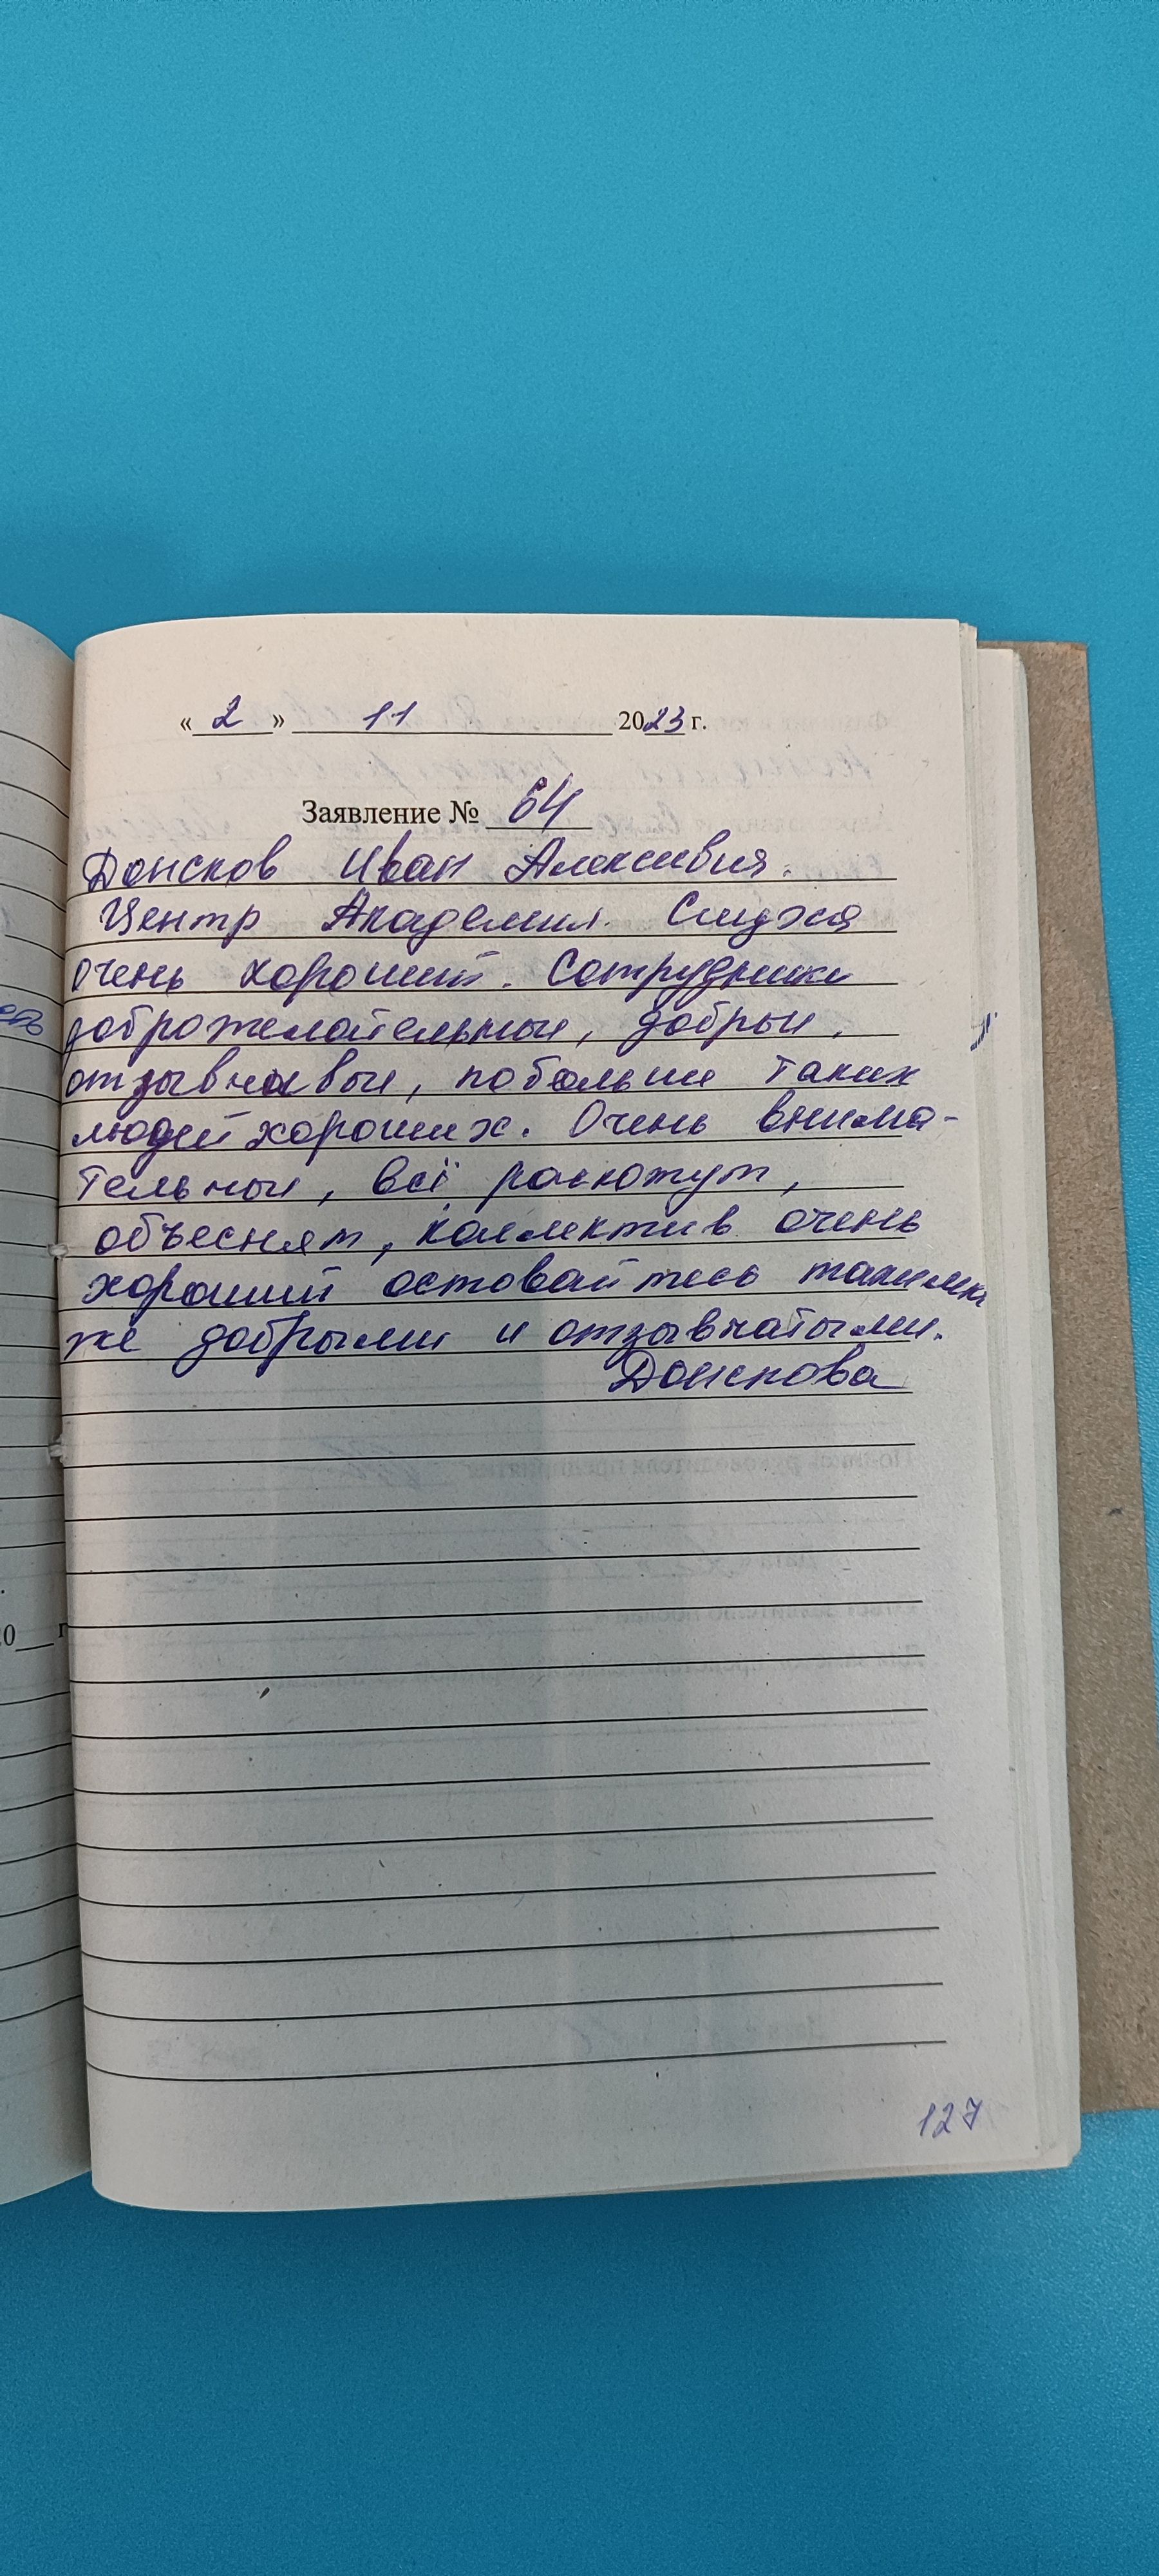 « 2 » 11 2023 г.
Заявление № 64
Донсков Иван Алексивия.
Центр Академия. Слуха
очень хороший. Сотрудники
доброжелательныи, добрыи,
отзывчивыи, побольши таких
людей хороших. Очень внима-
тельныи, всё раскожут,
объеснят, коллектив очень
хороший оставайтесь такими
же добрыми и отзывчатыми.
Донскова
20 г
127